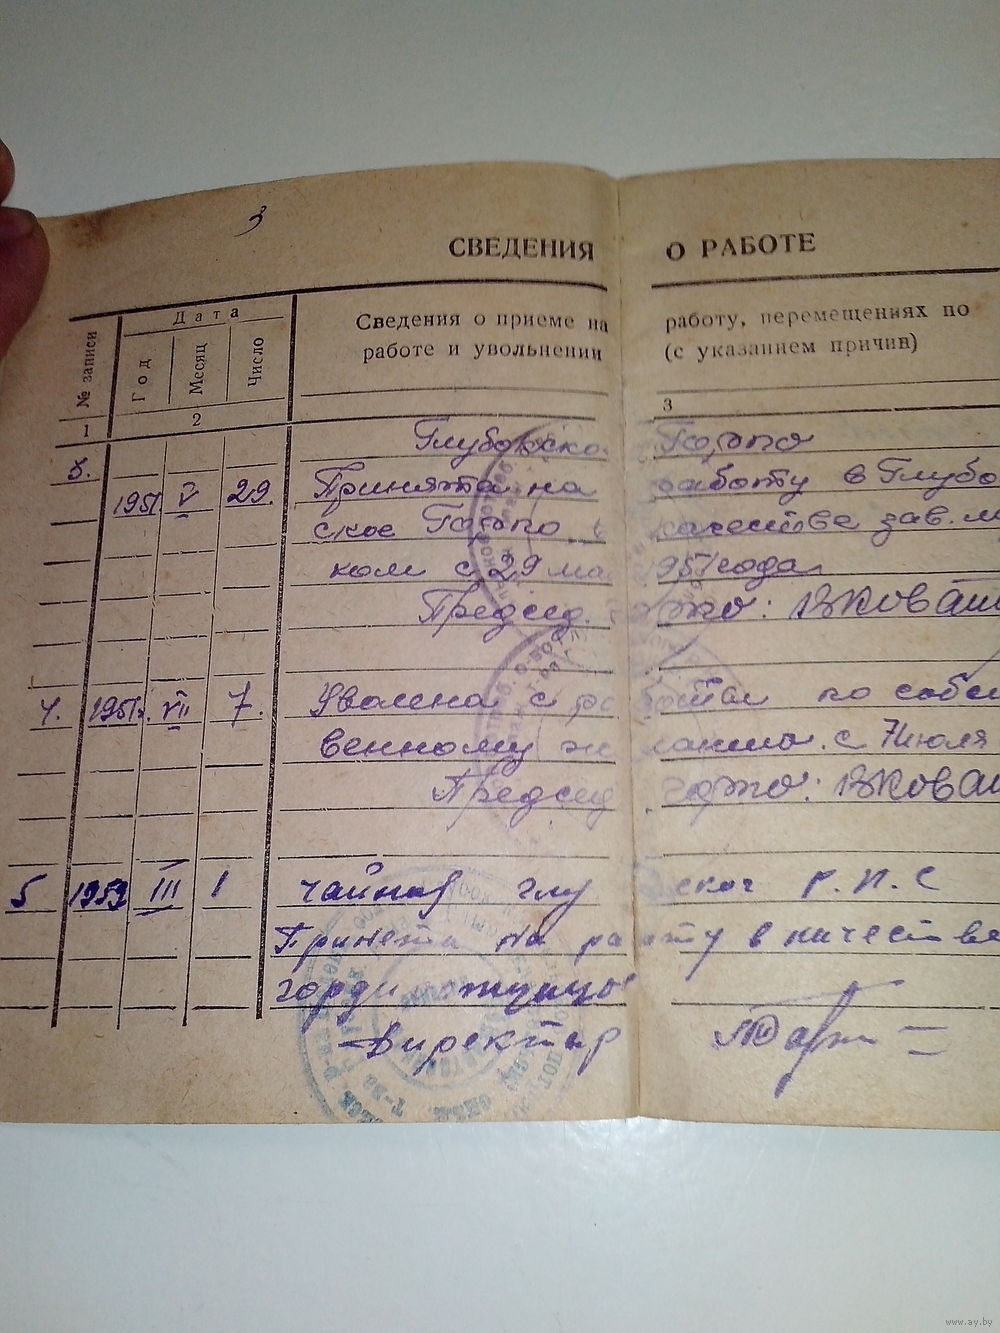 3
СВЕДЕНИЯ О РАБОТЕ
№ записи
Дата
Год
Месяц
Число
Сведения о приеме на работу, перемещениях по
работе и увольнении (с указанием причин)
1 2 3
Глубокско Горпо
3. 1957 V 29. Принята на работу в Глубо
ское Горпо в качестве зав. м
ком с 29 ма 1957 года
Председ. горпо: Ковал
4. 1957. VII 7. Уволена с работы по собст
венному желанию. с 7 июля
Председ горпо: Ковал
5 1959 III 1 чайная глу ская Г.П.С
Принета на работу в качестве
гордиропщицы
Директор
www.ay.by